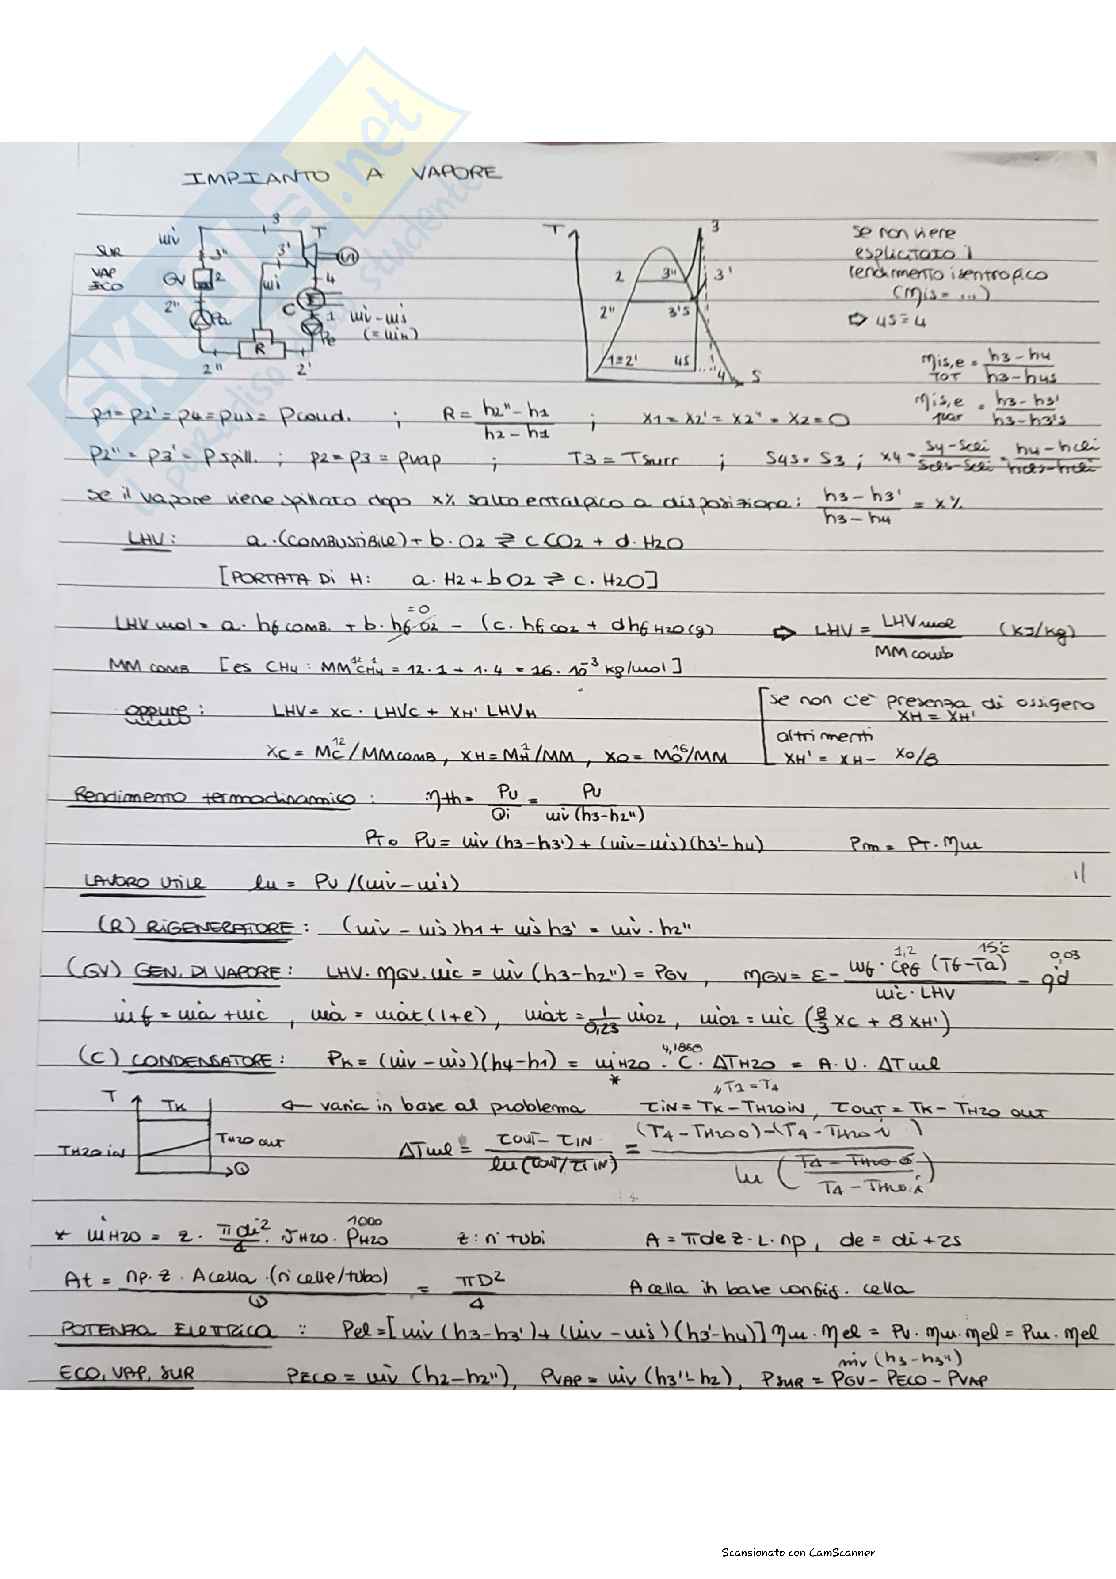 IMPIANTO A VAPORE
SUR
VAP
ECO
ṁv
3
T
3"
3'
GV
2
ṁs
4
C
2"
Pa
1
ṁv-ṁs
Pe
R
2"
2'
T
3
2
3"
3'
2"
3's
1=2'
4s
4
S
se non viene
esplicitato il
rendimento isentropico
(ηis = ...)
⇨ 4s = 4
ηis,e TOT = (h3-h4)/(h3-h4s)
p1 = p2' = p4 = p4s = pcond. ; R = (h2"-h1)/(h2-h1) ; x1 = x2' = x2" = x2 = 0
ηis,e par = (h3-h3')/(h3-h3's)
p2" = p3' = pspill. ; p2 = p3 = pvap ; T3 = Tsurr ; S4s = S3 ; x4 =
se il vapore viene spillato dopo x% salto entalpico a disposizione: (h3-h3')/(h3-h4) = x%
LHV: a·(COMBUSTIBILE) + b·O2 ⇄ cCO2 + d·H2O
[PORTATA DI H: a·H2 + bO2 ⇄ c·H2O]
LHVmol = a·hf comb. + b·hf O2 (=0) - (c·hf CO2 + dhf H2O(g)) ⇨ LHV = LHVmol/MMcomb (kJ/kg)
MM comb [es CH4: MM CH4 = 12·1 + 1·4 = 16·10⁻³ kg/mol]
oppure: LHV = xc·LHVc + xH' LHVH
[se non c'è presenza di ossigeno
xH = xH'
altrimenti
xH' = xH - xO/8
xc = MC¹²/MMcomb, xH = MH¹/MM, xO = MO¹⁶/MM
Rendimento termodinamico: ηth = Pu/Qi = Pu/ṁv(h3-h2")
PT o Pu = ṁv(h3-h3') + (ṁv-ṁs)(h3'-h4) Pm = PT·ηm
LAVORO UTILE lu = Pu/(ṁv-ṁs)
(R) RIGENERATORE: (ṁv-ṁs)h1 + ṁs h3' = ṁv·h2"
(GV) GEN. DI VAPORE: LHV·ηGV·ṁc = ṁv(h3-h2") = PGV, ηGV = ε - ṁf·cpf (1,2) (Tf-Ta) (15°C)/ṁc·LHV - qd (0,03)
ṁf = ṁa + ṁc, ṁa = ṁat(1+e), ṁat = 1/0,23 ṁO2, ṁO2 = ṁc (8/3 xc + 8xH')
(C) CONDENSATORE: Pk = (ṁv-ṁs)(h4-h1) = ṁH2O·C (4,1868)·ΔTH2O = A·U·ΔTml
*
T
Tk
TH2O in
TH2O out
Q
← varia in base al problema τIN = Tk - TH2O in, τOUT = Tk - TH2O out
ΔTml = (τOUT - τIN)/ln(τOUT/τIN) = ((T4-TH2O o)-(T4-TH2O i))/ln((T4-TH2O o)/(T4-TH2O i))
* ṁH2O = z·πdi²/4·vH2O·ρH2O (1000) z: n° tubi A = πde z·L·np, de = di + 2s
At = np·z·Acella·(n°celle/tubo)/ = πD²/4 Acella in base config. cella
POTENZA ELETTRICA: Pel = [ṁv(h3-h3') + (ṁv-ṁs)(h3'-h4)] ηm·ηel = Pu·ηm·ηel = Pm·ηel
ṁv(h3-h3")
ECO, VAP, SUR PECO = ṁv(h2-h2"), PVAP = ṁv(h3"-h2), PSUR = PGV - PECO - PVAP
Scansionato con CamScanner